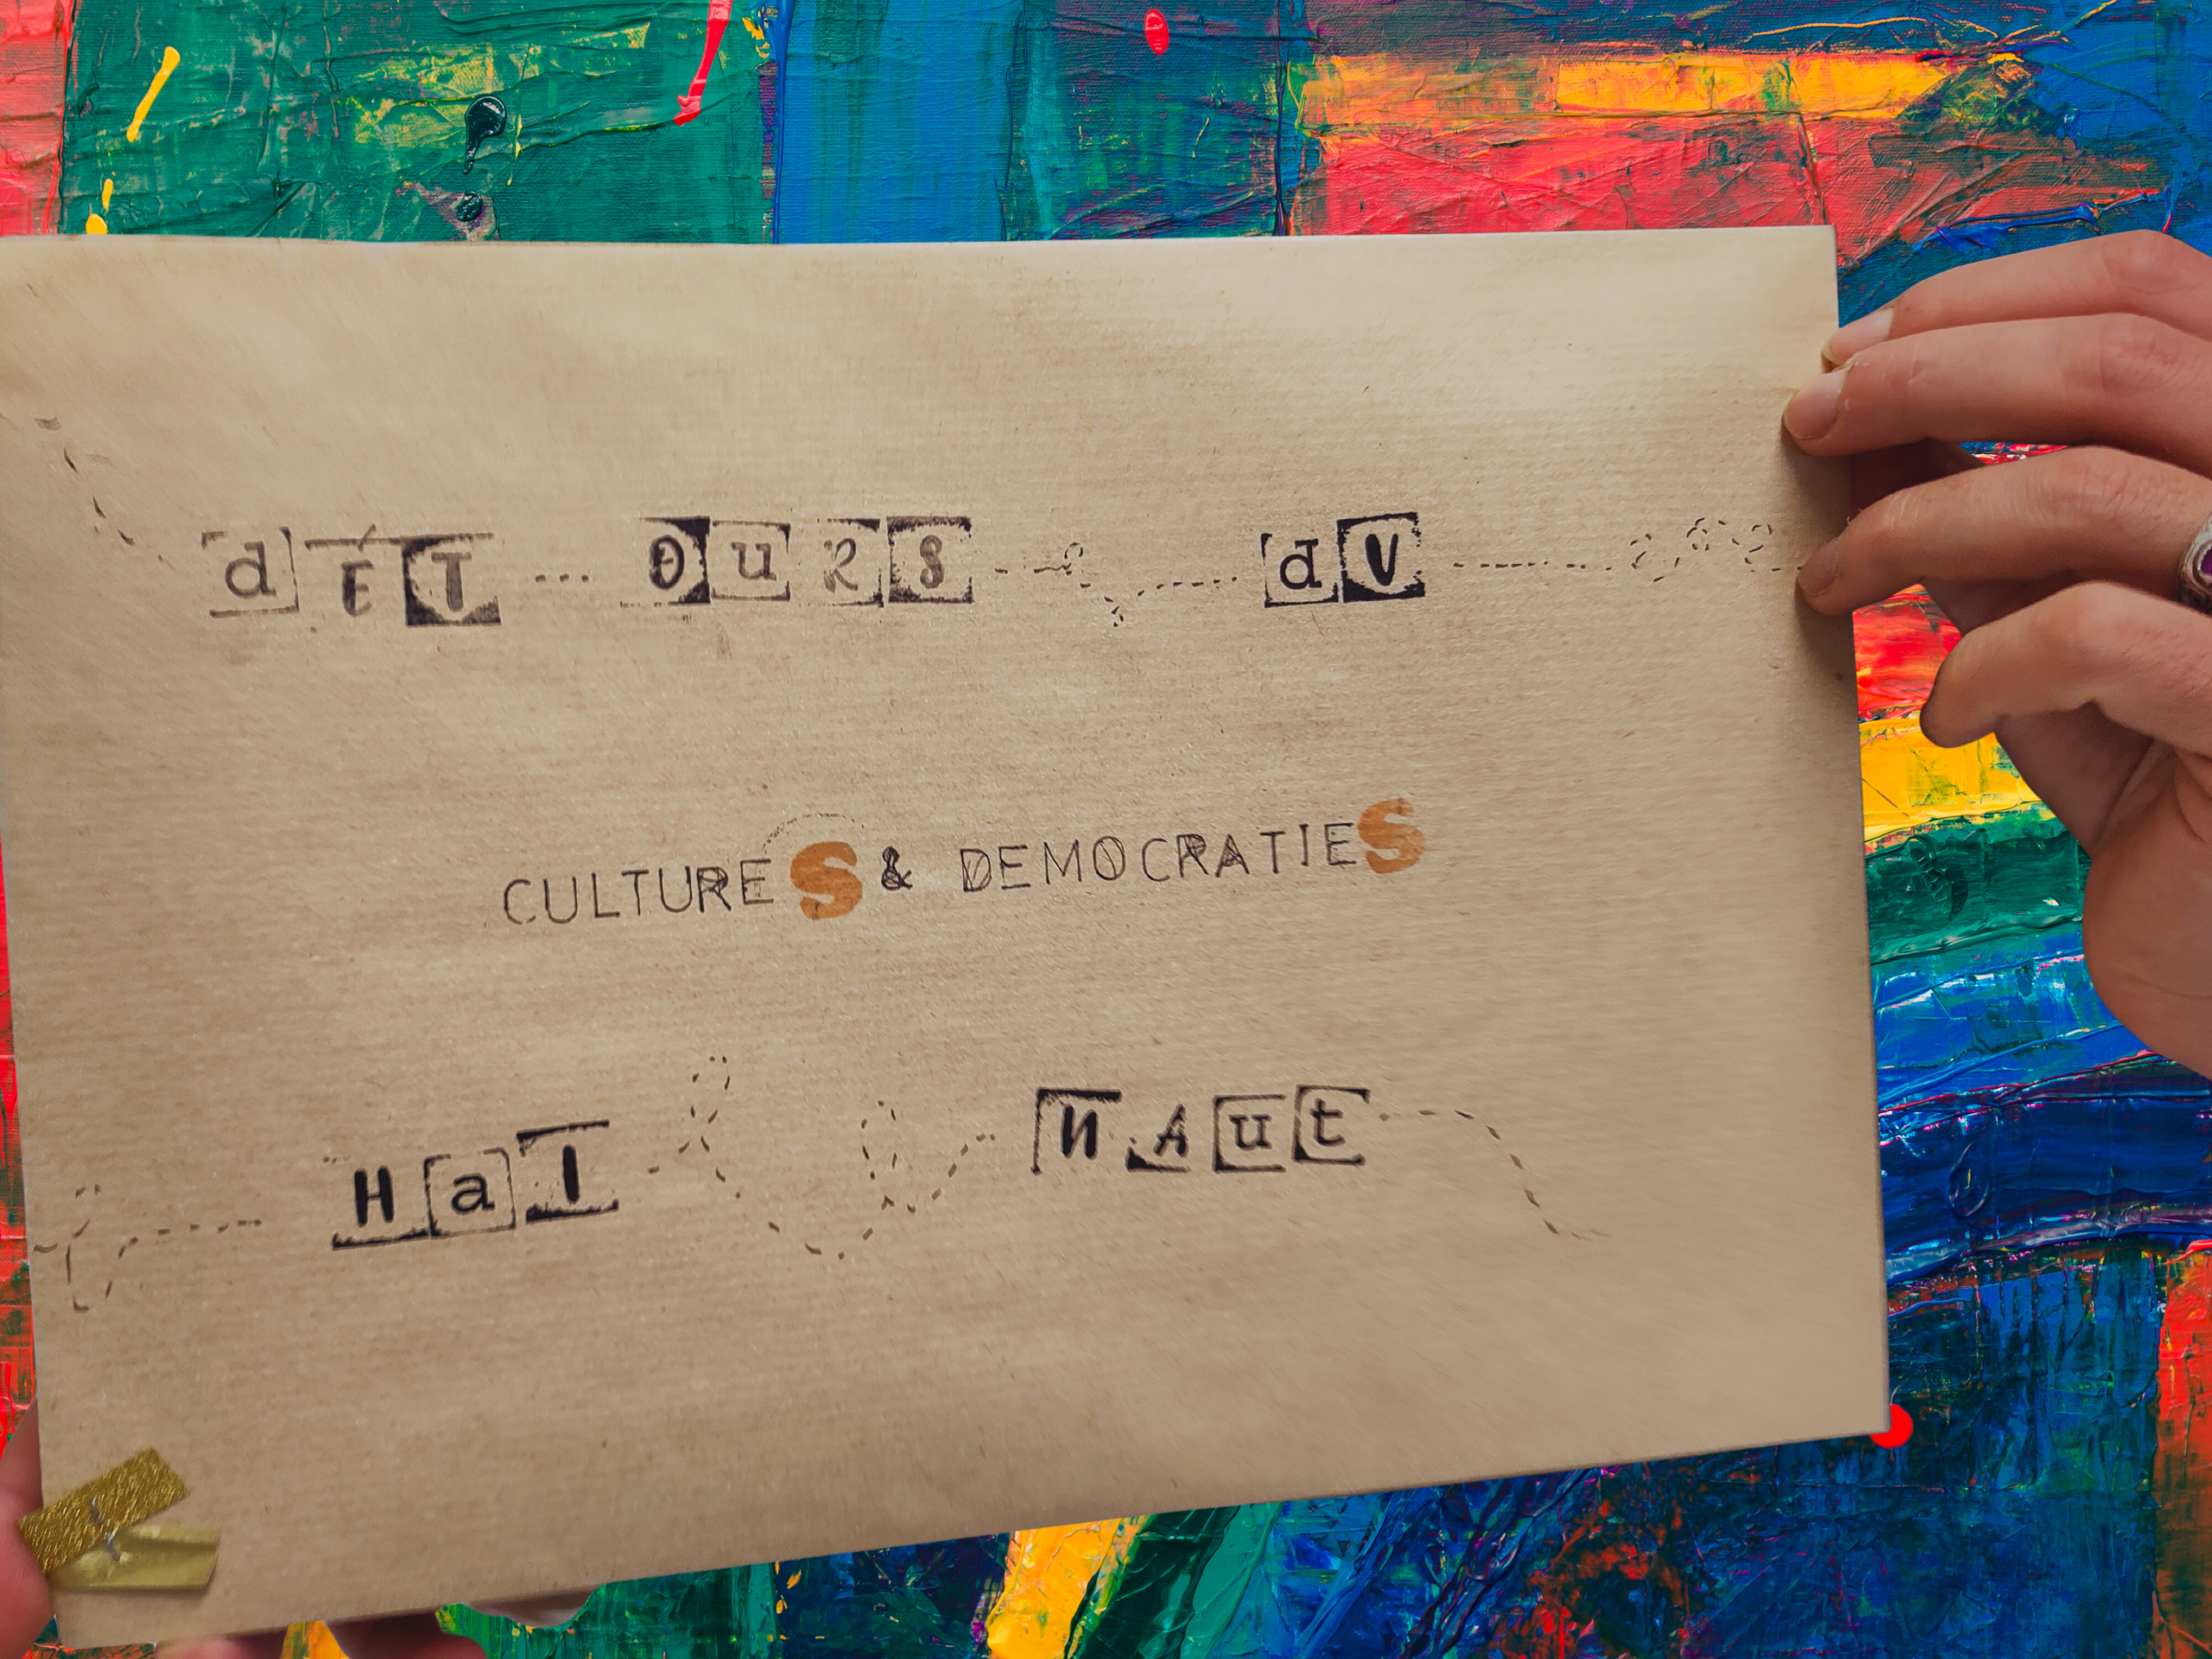 dÉT...OURS dV
CULTURES & DEMOCRATIES
HaI NAut